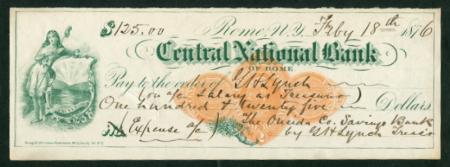 $125.00 Rome, N.Y. Feby 18th 1876
Central National Bank
OF ROME
Pay to the order of G H Lynch
on a/c Salary as Treasurer
One hundred & twenty five Dollars
Expense a/c The Oneida Co. Savings Bank
by G H Lynch Treas